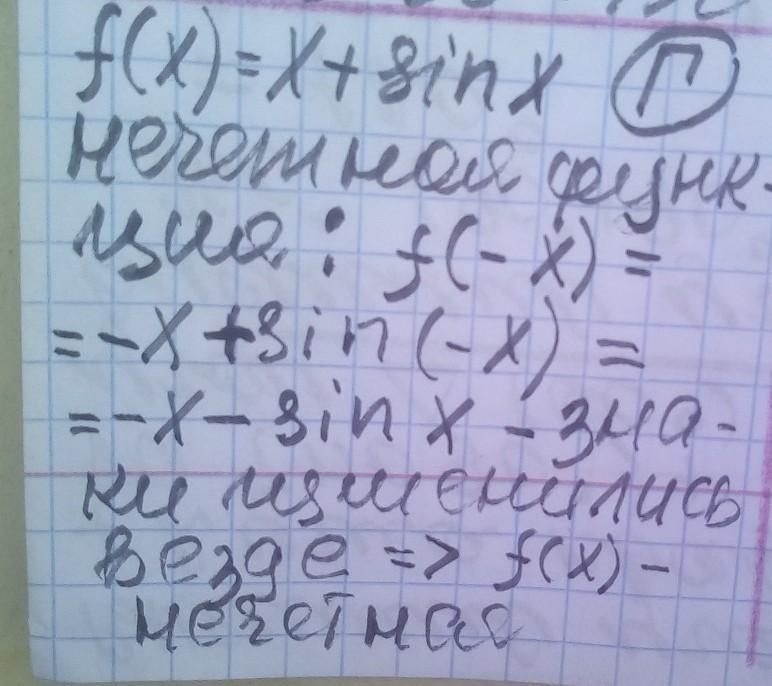 f(x)=x+sinx Г
нечетная функ-
ция: f(-x)=
=-x+sin(-x)=
=-x-sinx-зна-
ки изменились
везде => f(x)-
нечетная